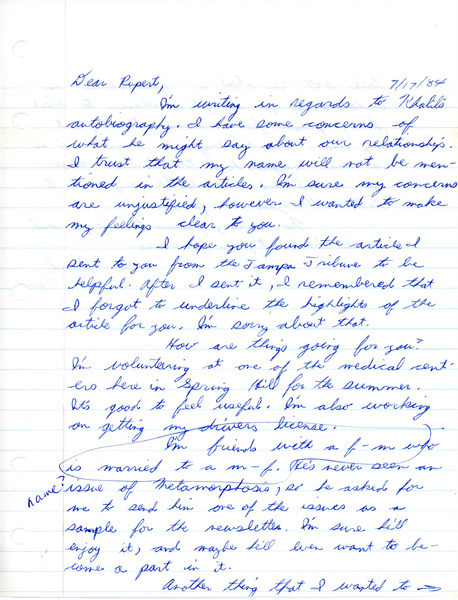 Dear Rupert, 7/17/84
I'm writing in regards to Khalil's
autobiography. I have some concerns of
what he might say about our relationship.
I trust that my name will not be men-
tioned in the articles. I'm sure my concerns
are unjustified, however I wanted to make
my feelings clear to you.
I hope you found the article I
sent to you from the Tampa Tribune to be
helpful. After I sent it, I remembered that
I forgot to underline the highlights of the
article for you. I'm sorry about that.
How are things going for you?
I'm volunteering at one of the medical cent-
ers here in Spring Hill for the summer.
It's good to feel useful. I'm also working
on getting my drivers license.
I'm friends with a f-m who
is married to a m-f. He's never seen an
name? issue of Metamorphosis, so he asked for
me to send him one of the issues as a
sample for the newsletter. I'm sure he'll
enjoy it, and maybe he'll even want to be-
come a part in it.
Another thing that I wanted to →